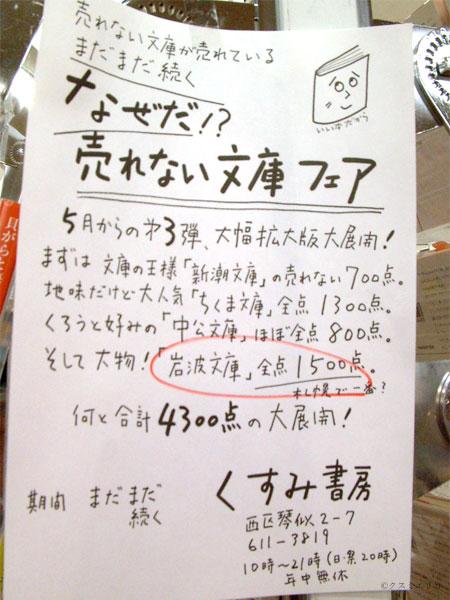 売れない文庫が売れている
まだまだ 続く
なぜだ!?
いい本だから
売れない文庫フェア
5月からの第3弾、大幅拡大版大展開!
まずは 文庫の王様「新潮文庫」の売れない700点。
地味だけど大人気「ちくま文庫」全点1300点。
くろうと好みの「中公文庫」ほぼ全点800点。
そして大物!「岩波文庫」全点1500点。
札幌で一番?
何と合計4300点の大展開!
期間 まだまだ
続く
くすみ書房
西区琴似2-7
611-3819
10時〜21時(日・祭20時)
年中無休